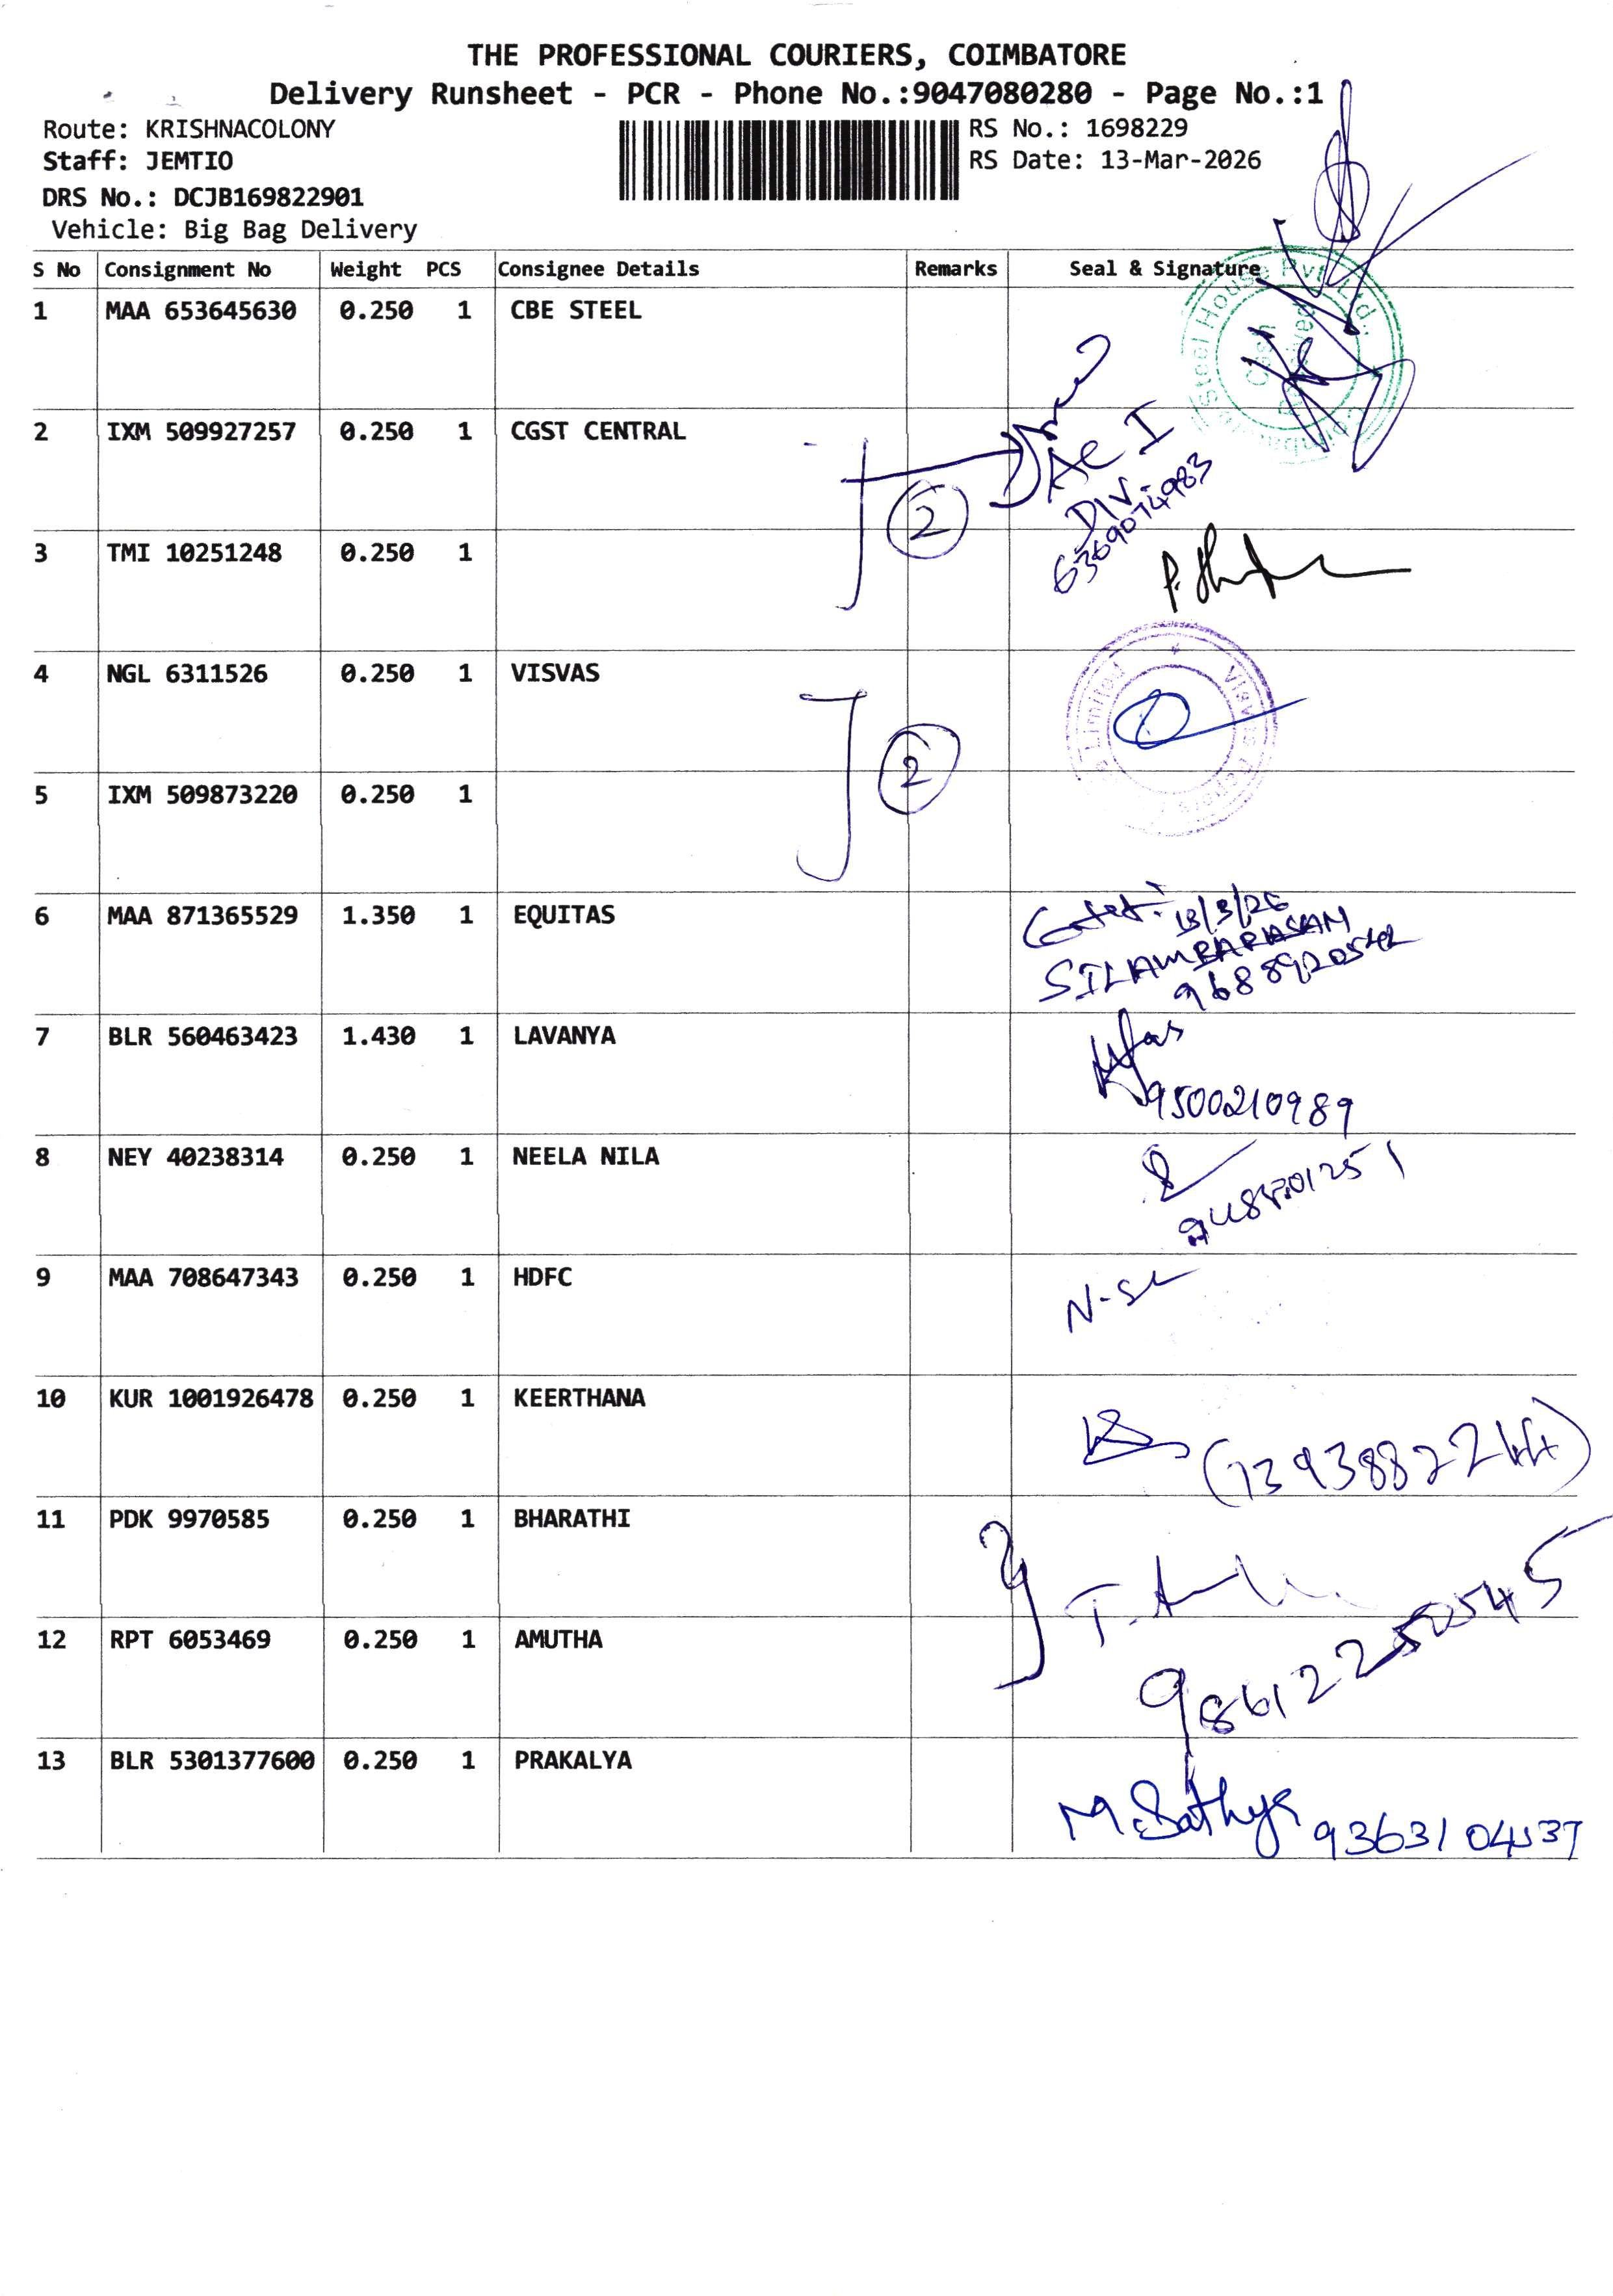 THE PROFESSIONAL COURIERS, COIMBATORE
Delivery Runsheet - PCR - Phone No.:9047080280 - Page No.:1
Route: KRISHNACOLONY
Staff: JEMTIO
DRS No.: DCJB169822901
Vehicle: Big Bag Delivery
RS No.: 1698229
RS Date: 13-Mar-2026
S No Consignment No Weight PCS Consignee Details Remarks Seal & Signature
1 MAA 653645630 0.250 1 CBE STEEL
Steel House Pvt Ltd.
Cash
2 IXM 509927257 0.250 1 CGST CENTRAL
2
AC I
DIV.
6369074983
3 TMI 10251248 0.250 1
4 NGL 6311526 0.250 1 VISVAS
Visvas Limited
2
5 IXM 509873220 0.250 1
6 MAA 871365529 1.350 1 EQUITAS
13/3/26
SILAMBARASAN
9688920542
7 BLR 560463423 1.430 1 LAVANYA
9500210989
8 NEY 40238314 0.250 1 NEELA NILA
9 MAA 708647343 0.250 1 HDFC
10 KUR 1001926478 0.250 1 KEERTHANA
(7393882244)
11 PDK 9970585 0.250 1 BHARATHI
12 RPT 6053469 0.250 1 AMUTHA
13 BLR 5301377600 0.250 1 PRAKALYA
M. Sathya